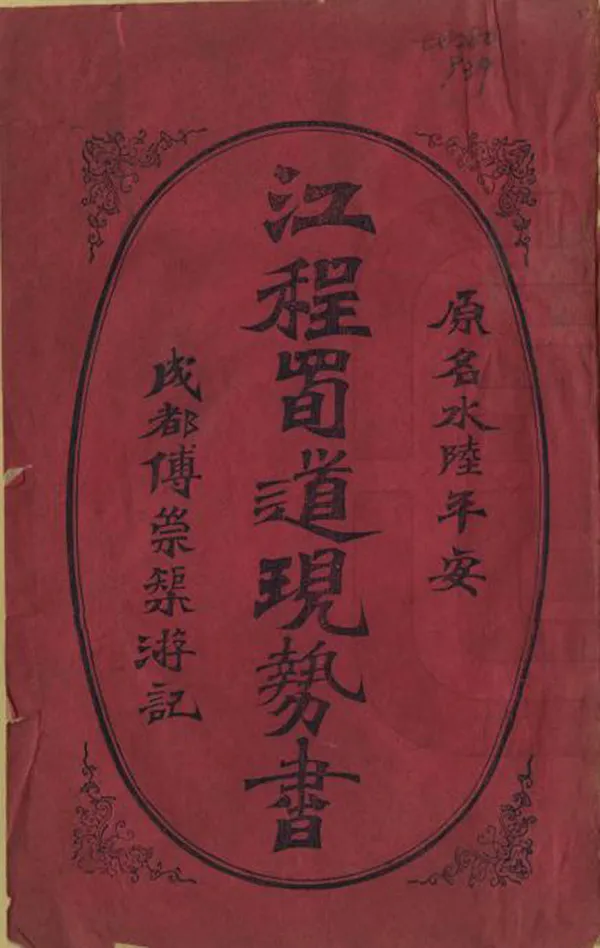 原名水陸年安
江程蜀道現勢書
成都傅崇榘游記